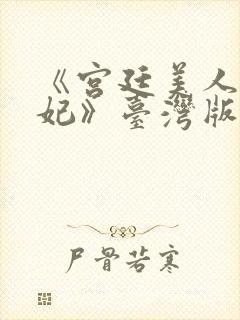 《宫廷美人
妃》臺灣版
尸骨若寒